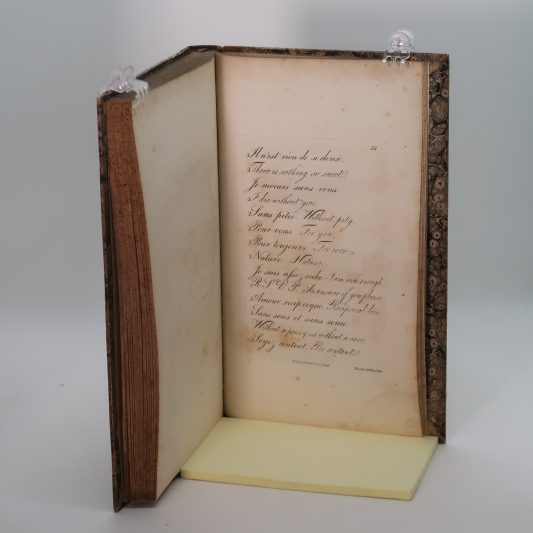 50
Il n'est rien de si doux.
There is nothing so sweet.
Je moeurs sans vous.
I die without you.
Sans pitié. Without pity.
Pour vous. For you.
Pour toujours. For ever.
Nature. Nature.
Je suis assez riche. I am rich enough.
R.S.V.P. An answer if you please.
Amour reciproque. Reciprocal love.
Sans sous et sans souci.
Without a penny and without a care.
Soyez content. Be content.